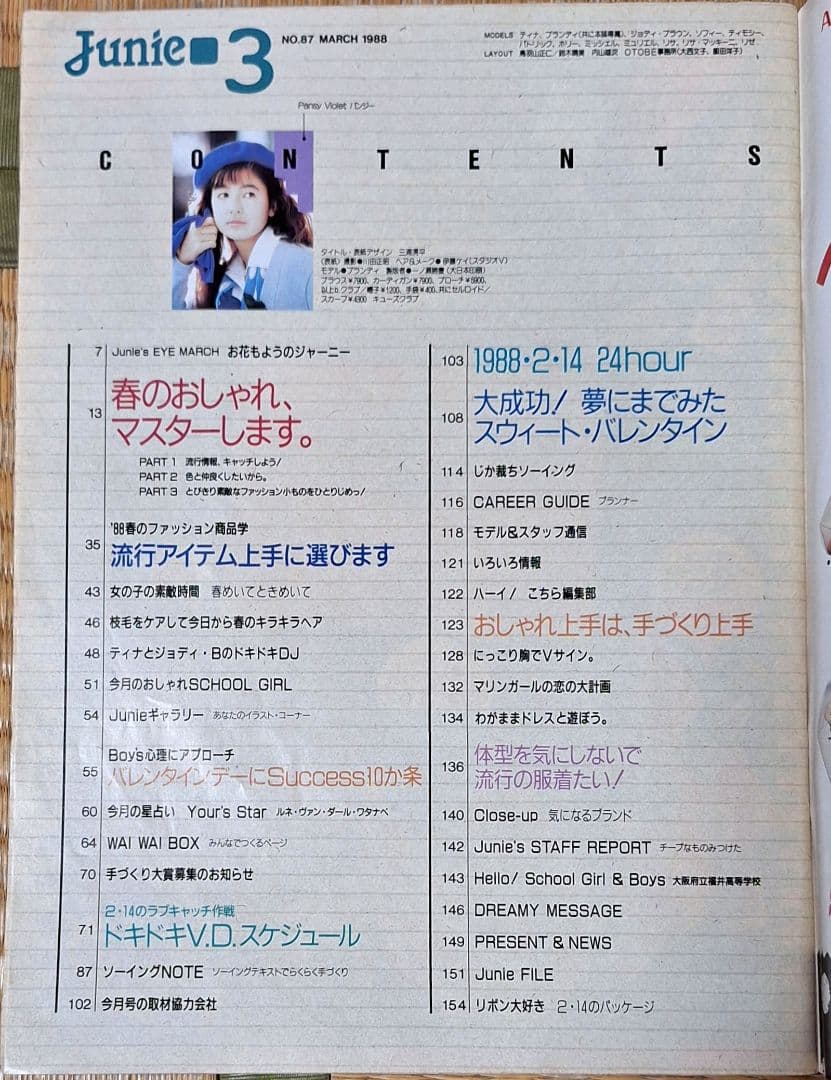 Junie■3
NO.87 MARCH 1988
MODELS ティナ、ブランディ(共に本誌専属)、ジョディ・ブラウン、ソフィー、ティモシー、
パトリック、ホリー、ミッシェル、ミュリエル、リサ、リサ・マッキーニ、リゼ
LAYOUT 鳥羽山正仁/鈴木晴美 内山雄次 OTOBE事務所(大西文子、飯田洋子)
Pansy Violet パンジー
CONTENTS
タイトル・表紙デザイン 三浦滉平
〈表紙〉撮影●川田正昭 ヘア&メーク●伊藤ケイ(スタジオV)
モデル●ブランディ 製版者●一ノ瀬勝重(大日本印刷)
ブラウス¥7900、カーディガン¥7900、ブローチ¥6900、
以上b.クラブ/帽子¥1200、手袋¥400、共にセルロイド/
スカーフ¥4300 キューズクラブ
7 Junie's EYE MARCH お花もようのジャーニー
13 春のおしゃれ、
マスターします。
PART 1 流行情報、キャッチしよう!
PART 2 色と仲良くしたいから。
PART 3 とびきり素敵なファッション小ものをひとりじめっ!
'88春のファッション商品学
35 流行アイテム上手に選びます
43 女の子の素敵時間 春めいてときめいて
46 枝毛をケアして今日から春のキラキラヘア
48 ティナとジョディ・BのドキドキDJ
51 今月のおしゃれSCHOOL GIRL
54 Junieギャラリー あなたのイラスト・コーナー
Boy's心理にアプローチ
55 バレンタインデーにSuccess10か条
60 今月の星占い Your's Star ルネ・ヴァン・ダール・ワタナベ
64 WAI WAI BOX みんなでつくるページ
70 手づくり大賞募集のお知らせ
2・14のラブキャッチ作戦
71 ドキドキV.D.スケジュール
87 ソーイングNOTE ソーイングテキストでらくらく手づくり
102 今月号の取材協力会社
103 1988・2・14 24hour
108 大成功! 夢にまでみた
スウィート・バレンタイン
114 じか裁ちソーイング
116 CAREER GUIDE プランナー
118 モデル&スタッフ通信
121 いろいろ情報
122 ハーイ! こちら編集部
123 おしゃれ上手は、手づくり上手
128 にっこり胸でVサイン。
132 マリンガールの恋の大計画
134 わがままドレスと遊ぼう。
136 体型を気にしないで
流行の服着たい!
140 Close-up 気になるブランド
142 Junie's STAFF REPORT チープなものみつけた
143 Hello! School Girl & Boys 大阪府立福井高等学校
146 DREAMY MESSAGE
149 PRESENT & NEWS
151 Junie FILE
154 リボン大好き 2・14のパッケージ